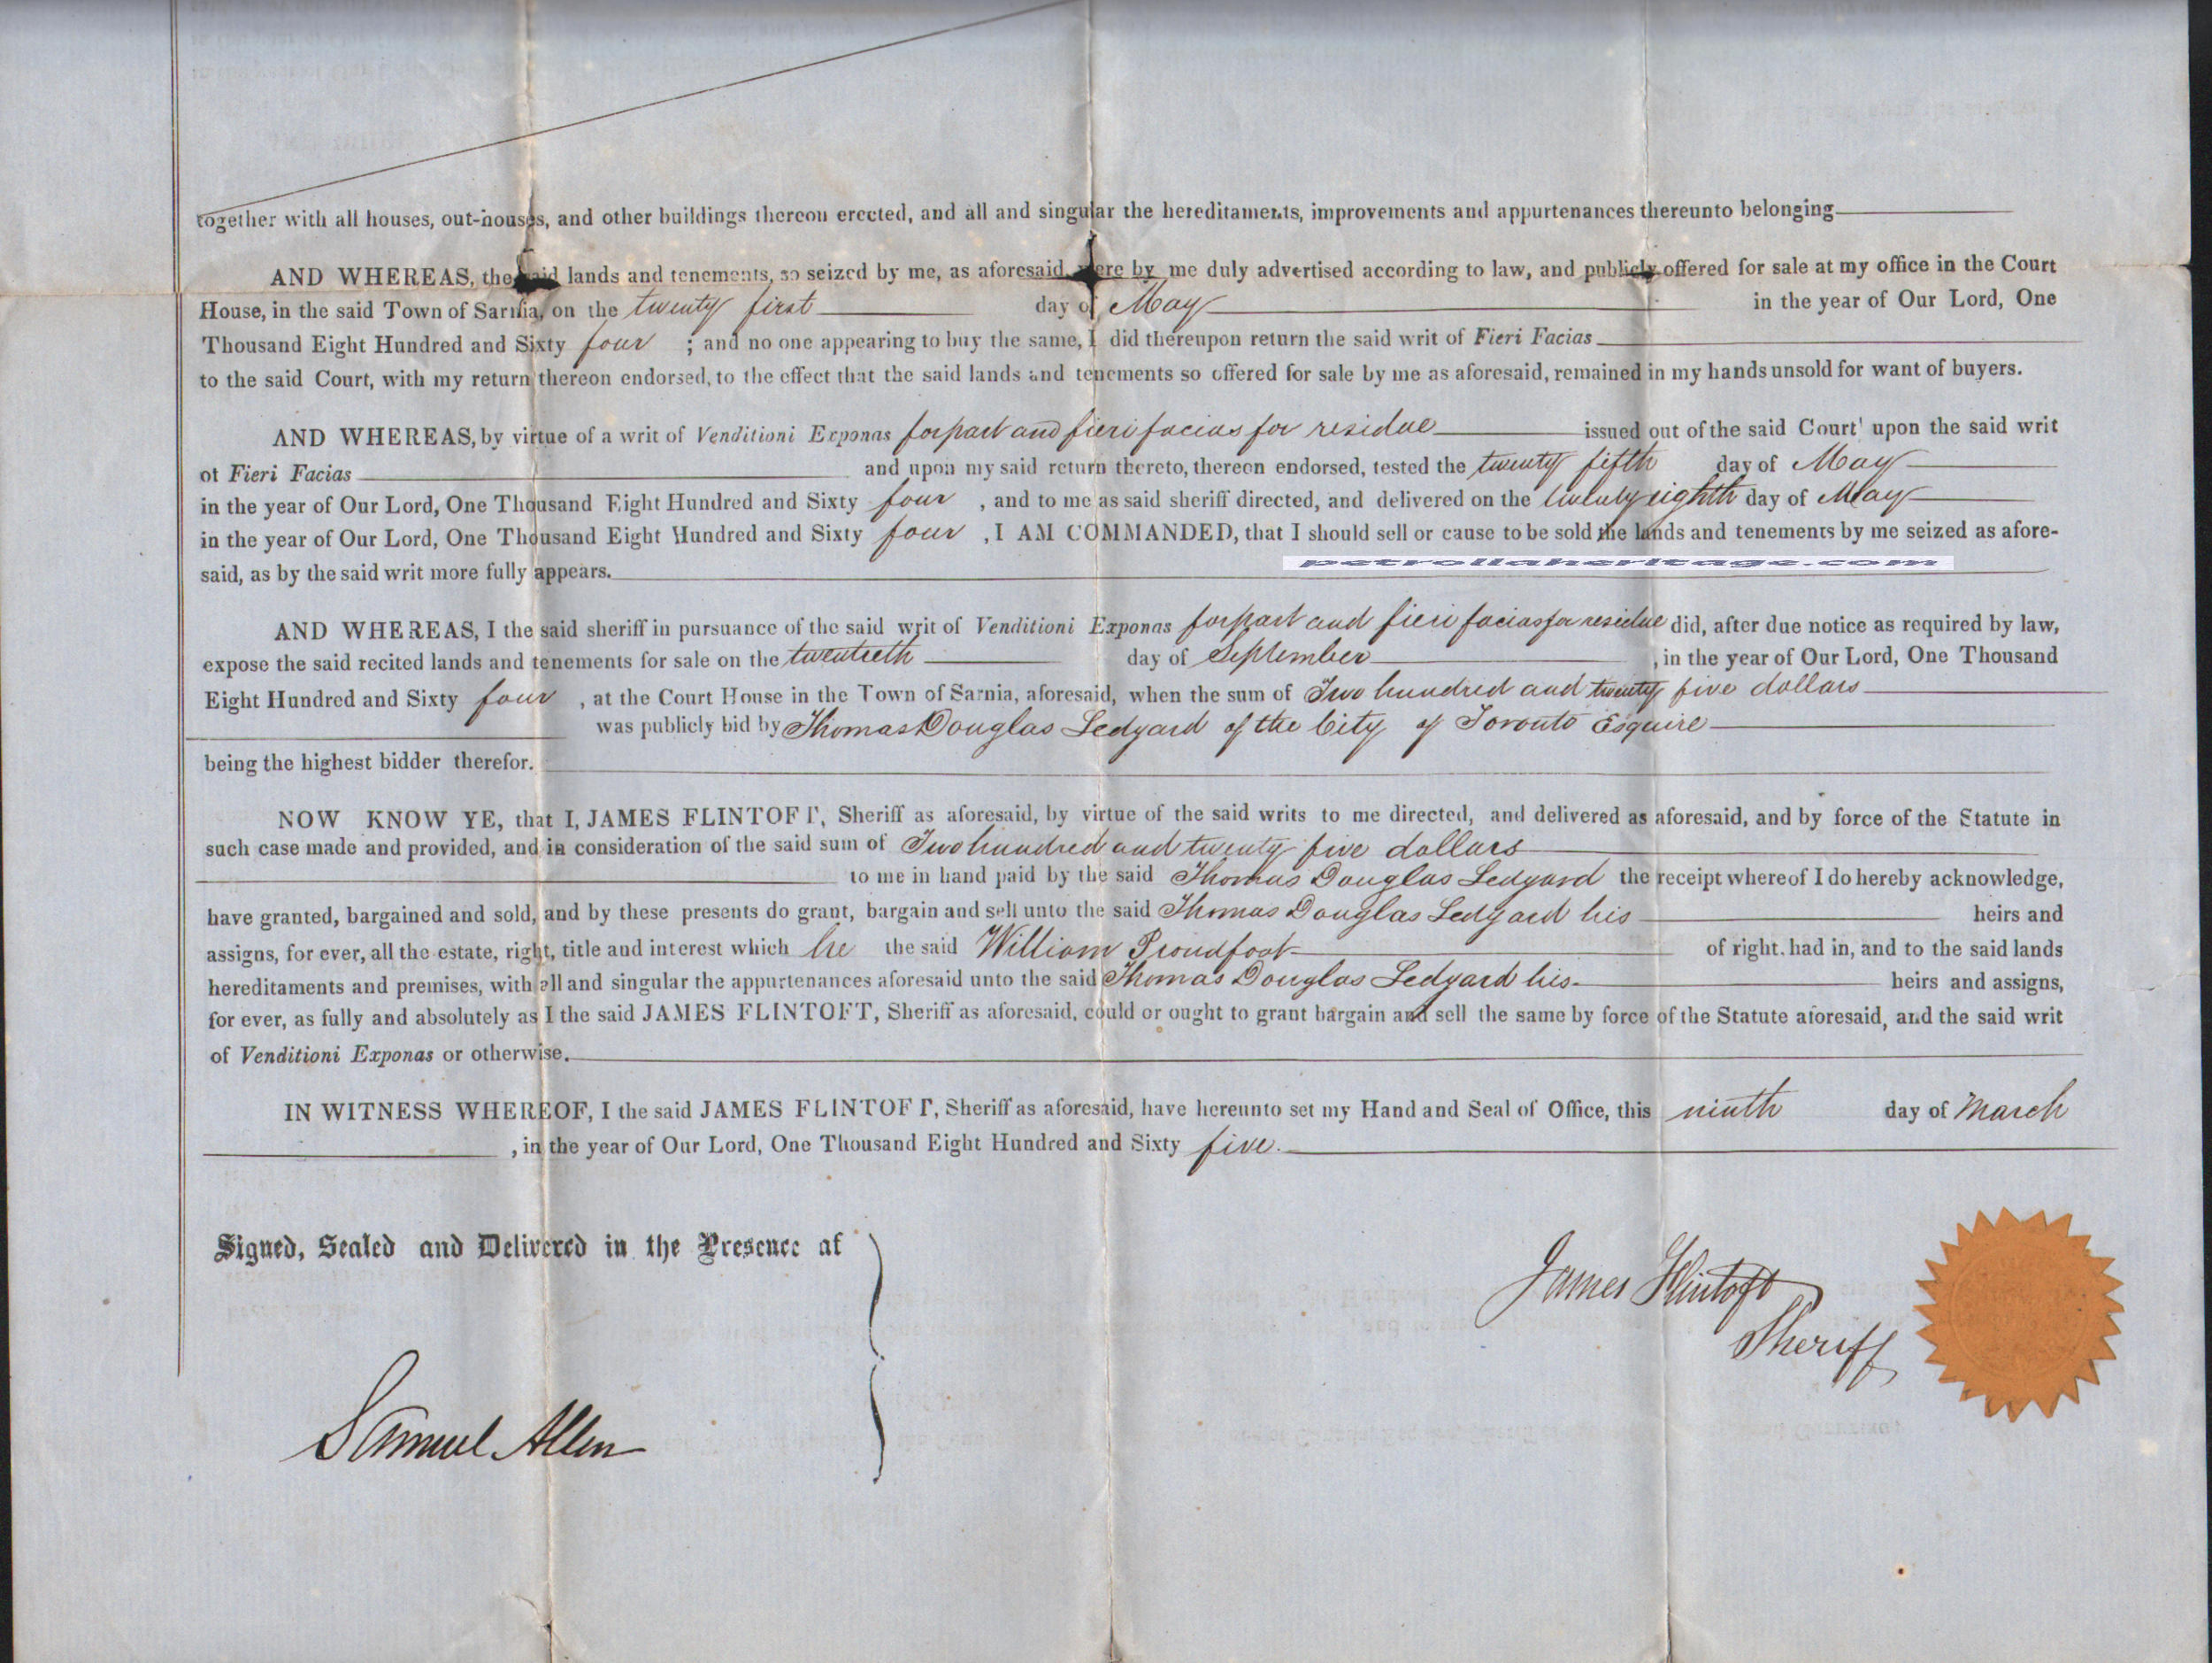 together with all houses, out-houses, and other buildings thereon erected, and all and singular the hereditaments, improvements and appurtenances thereunto belonging
AND WHEREAS, the said lands and tenements, so seized by me, as aforesaid, were by me duly advertised according to law, and publicly offered for sale at my office in the Court
House, in the said Town of Sarnia, on the twenty first day of May in the year of Our Lord, One
Thousand Eight Hundred and Sixty four ; and no one appearing to buy the same, I did thereupon return the said writ of Fieri Facias
to the said Court, with my return thereon endorsed, to the effect that the said lands and tenements so offered for sale by me as aforesaid, remained in my hands unsold for want of buyers.
AND WHEREAS, by virtue of a writ of Venditioni Exponas for part and fieri facias for residue issued out of the said Court upon the said writ
of Fieri Facias and upon my said return thereto, thereon endorsed, tested the twenty fifth day of May
in the year of Our Lord, One Thousand Eight Hundred and Sixty four , and to me as said sheriff directed, and delivered on the twenty eighth day of May
in the year of Our Lord, One Thousand Eight Hundred and Sixty four , I AM COMMANDED, that I should sell or cause to be sold the lands and tenements by me seized as afore-
petroliaheritage.com
said, as by the said writ more fully appears.
AND WHEREAS, I the said sheriff in pursuance of the said writ of Venditioni Exponas for part and fieri facias for residue did, after due notice as required by law,
expose the said recited lands and tenements for sale on the twentieth day of September , in the year of Our Lord, One Thousand
Eight Hundred and Sixty four , at the Court House in the Town of Sarnia, aforesaid, when the sum of Two hundred and twenty five dollars
was publicly bid by Thomas Douglas Ledyard of the City of Toronto Esquire
being the highest bidder therefor.
NOW KNOW YE, that I, JAMES FLINTOFT, Sheriff as aforesaid, by virtue of the said writs to me directed, and delivered as aforesaid, and by force of the Statute in
such case made and provided, and in consideration of the said sum of Two hundred and twenty five dollars
to me in hand paid by the said Thomas Douglas Ledyard the receipt whereof I do hereby acknowledge,
have granted, bargained and sold, and by these presents do grant, bargain and sell unto the said Thomas Douglas Ledyard his heirs and
assigns, for ever, all the estate, right, title and interest which he the said William Proudfoot of right, had in, and to the said lands
hereditaments and premises, with all and singular the appurtenances aforesaid unto the said Thomas Douglas Ledyard his heirs and assigns,
for ever, as fully and absolutely as I the said JAMES FLINTOFT, Sheriff as aforesaid, could or ought to grant bargain and sell the same by force of the Statute aforesaid, and the said writ
of Venditioni Exponas or otherwise.
IN WITNESS WHEREOF, I the said JAMES FLINTOFT, Sheriff as aforesaid, have hereunto set my Hand and Seal of Office, this ninth day of March
, in the year of Our Lord, One Thousand Eight Hundred and Sixty five.
Signed, Sealed and Delivered in the Presence of
James Flintoft
Sheriff
Samuel Allen